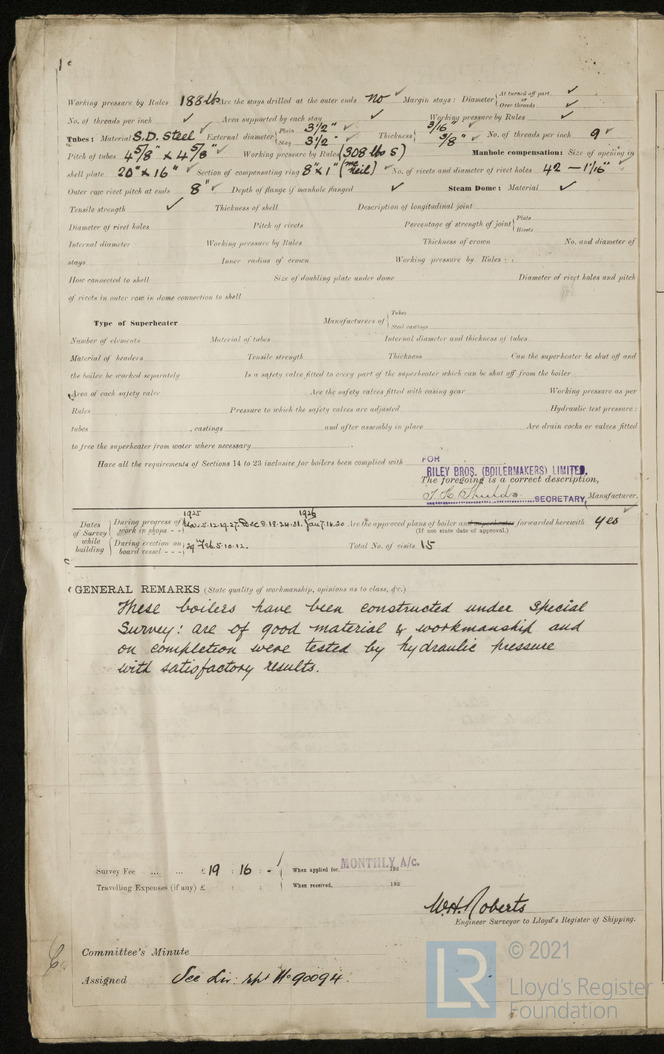 Working pressure by Rules 188 lbs Are the stays drilled at the outer ends no ✓ Margin stays: Diameter { At turned off part ✓ Over threads ✓
No. of threads per inch ✓ Area supported by each stay ✓ Working pressure by Rules ✓
Tubes: Material S.D. Steel ✓ External diameter { Plain 3½" ✓ Stay 3½" ✓ Thickness { 3/16 ✓ 3/8" ✓ No. of threads per inch 9 ✓
Pitch of tubes 4 5/8" x 4 5/8" ✓ Working pressure by Rules (308 lbs S) Manhole compensation: Size of opening in
shell plate 20" x 16" ✓ Section of compensating ring 8" x 1" ✓ No. of rivets and diameter of rivet holes 42 - 1 1/16" ✓
Outer row rivet pitch at ends 8" ✓ Depth of flange if manhole flanged ✓ Steam Dome: Material ✓
Tensile strength ✓ Thickness of shell Description of longitudinal joint
Diameter of rivet holes Pitch of rivets Percentage of strength of joint { Plate Rivets
Internal diameter Working pressure by Rules Thickness of crown No. and diameter of
stays Inner radius of crown Working pressure by Rules
How connected to shell Size of doubling plate under dome Diameter of rivet holes and pitch
of rivets in outer row in dome connection to shell
Type of Superheater Manufacturers of { Tubes Steel castings
Number of elements Material of tubes Internal diameter and thickness of tubes
Material of headers Tensile strength Thickness Can the superheater be shut off and
the boiler be worked separately Is a safety valve fitted to every part of the superheater which can be shut off from the boiler
Area of each safety valve Are the safety valves fitted with easing gear Working pressure as per
Rules Pressure to which the safety valves are adjusted Hydraulic test pressure:
tubes , castings and after assembly in place Are drain cocks or valves fitted
to free the superheater from water where necessary
Have all the requirements of Sections 14 to 23 inclusive for boilers been complied with
FOR
RILEY BROS. (BOILERMAKERS) LIMITED.
The foregoing is a correct description,
SECRETARY, Manufacturer.
Dates of Survey while building
1925 1926
During progress of work in shops - - Nov. 5. 12. 19. 27. Dec 8. 18. 24. 31. Jan 7. 14. 20 Are the approved plans of boiler and superheater forwarded herewith yes
(If not state date of approval.)
During erection on board vessel - - - 29 Feb 5. 10. 12. Total No. of visits 15
GENERAL REMARKS (State quality of workmanship, opinions as to class, &c.)
These boilers have been constructed under Special
Survey: are of good material & workmanship and
on completion were tested by hydraulic pressure
with satisfactory results.
Survey Fee ... ... £ 19 : 16 : - When applied for, MONTHLY A/c. 192
Travelling Expenses (if any) £ : : When received, 192
W.H. Roberts
Engineer Surveyor to Lloyd's Register of Shipping.
Committee's Minute
Assigned See Liv. rpt No 90094.
LR
© 2021
Lloyd's Register
Foundation